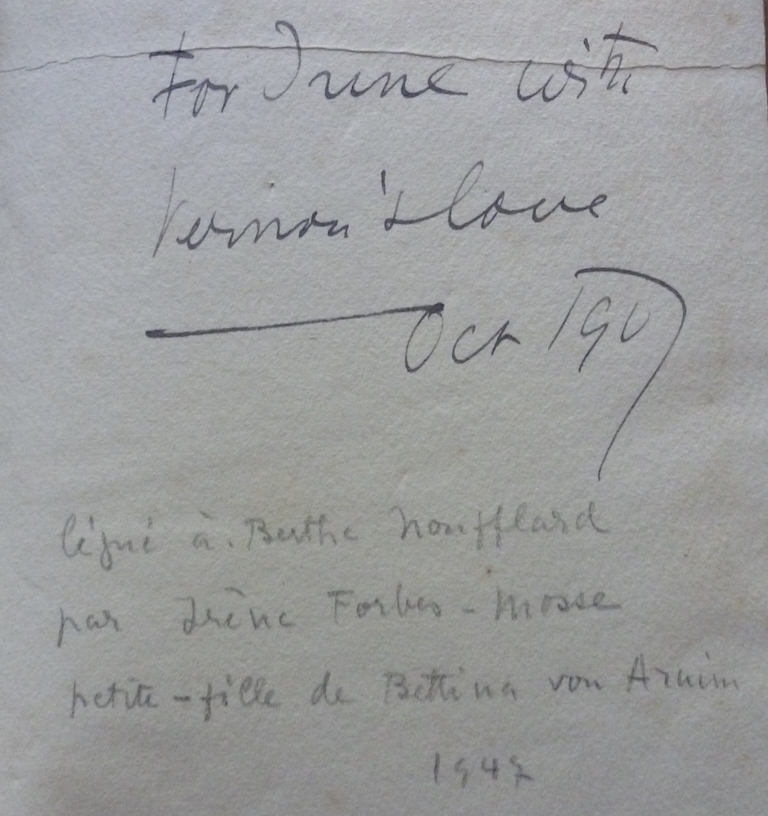 For Irene with
Vernon's love
Oct 1907
légué à Berthe Noufflard
par Irène Forbes-Mosse
petite-fille de Bettina von Arnim
1947